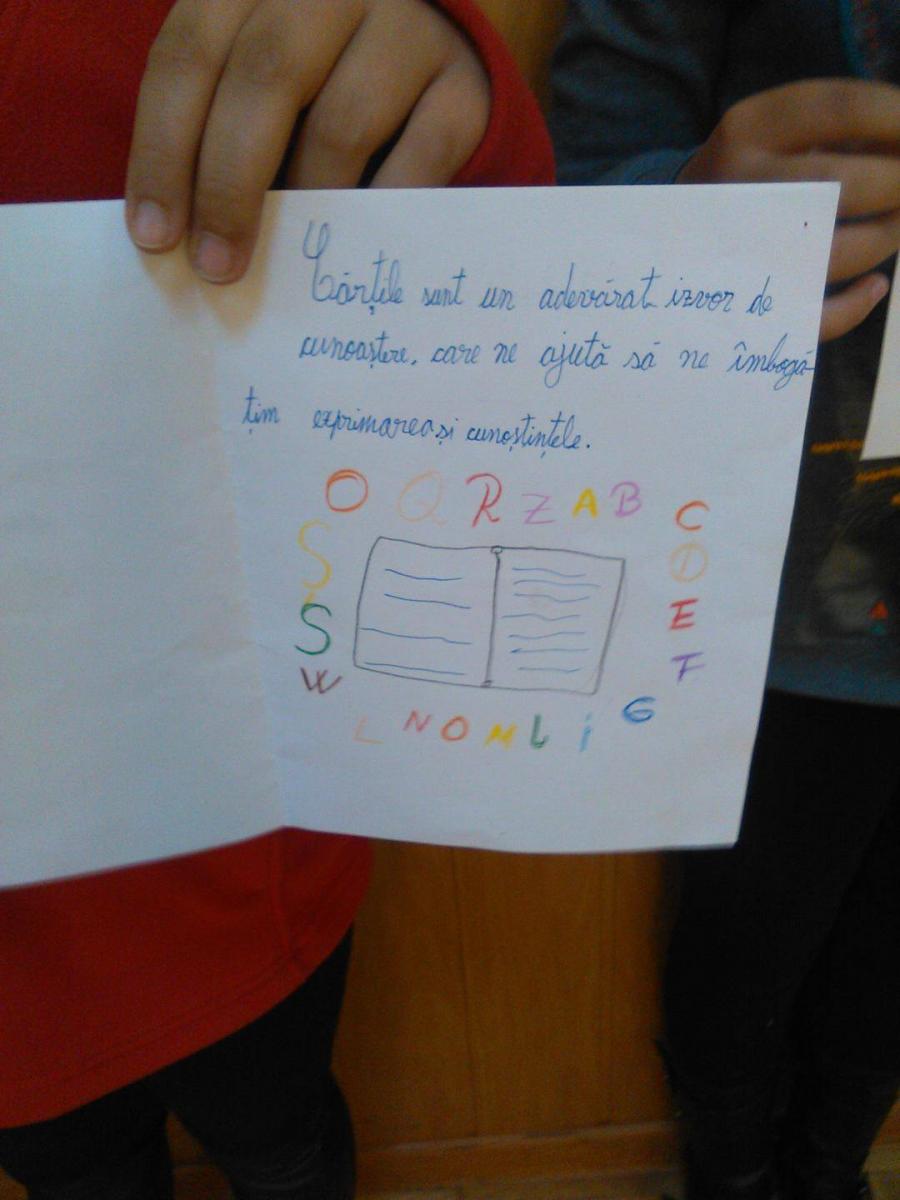 Cărțile sunt un adevărat izvor de
cunoaștere, care ne ajută să ne îmbogă-
țim exprimarea și cunoștințele.
O Q R Z A B
C
D
E
F
G
S
S
W
L N O M L i